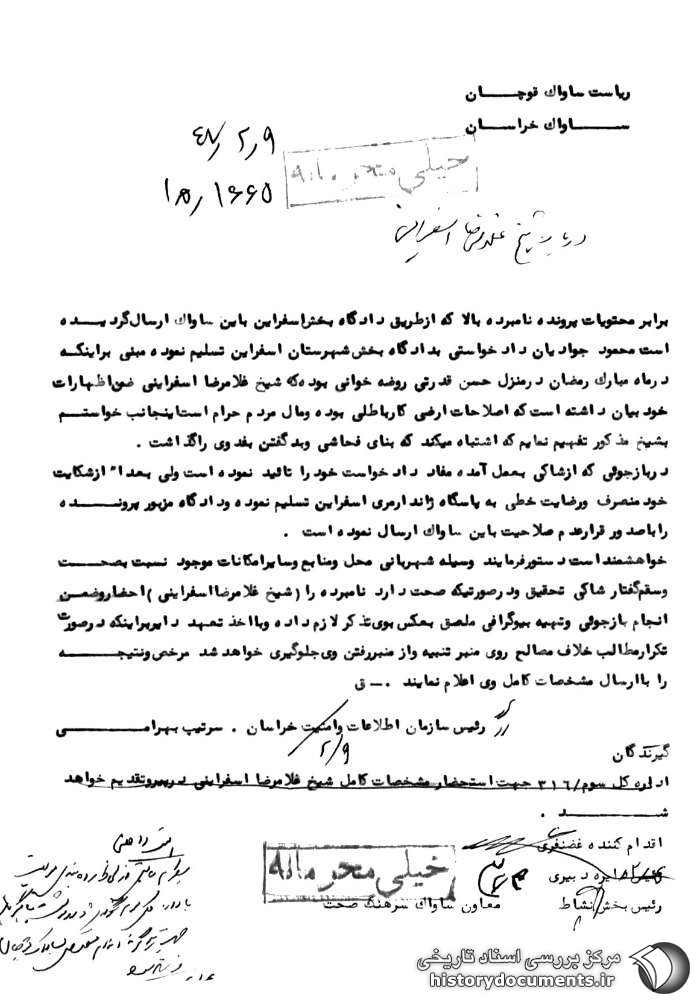 ریاست ساواك قوچـــــان
ســـــاواك خراســـان
۴۸/۲/۹
خیلی محرمانه
در باره شیخ غلامرضا اسفراینی
برابر محتویات پرونده نامبرده بالا که ازطریق دادگاه بخش اسفراین باین ساواك ارسال گردیـــــده
است محمود جوادیان دادخواستی بدادگاه بخش شهرستان اسفراین تسلیم نموده مبنی براینکـه
درماه مبارك رمضان درمنزل حسن قدرتی روضه خوانی بوده که شیخ غلامرضا اسفراینی ضمن اظهارات
خود بیان داشته است که اصلاحات ارضی کارباطلی بوده ومال مردم حرام است اینجانب خواستــم
بشیخ مذکور تفهیم نمایم که اشتباه میکند که بنای فحاشی وبد گفتن بفدوی راگذاشت .
دربازجوئی که ازشاکی بعمل آمده مفاد دادخواست خود را تائید نموده است ولی بعداً ازشکایت
خود منصرف ورضایت خطی به پاسگاه ژاندارمری اسفراین تسلیم نموده ودادگاه مزبور پرونـــــده
راباصدور قرارعدم صلاحیت باین ساواك ارسال نموده است .
خواهشمند است دستورفرمایند وسیله شهربانی محل ومنابع وسایرامکانات موجود نسبت بصحـــت
وسقم گفتار شاکی تحقیق ودرصورتیکه صحت دارد نامبرده را (شیخ غلامرضا اسفراینی) احضاروضمن
انجام بازجوئی وتهیه بیوگرافی ملصق بعکس بوی تذکر لازم داده وبااخذ تعهد دایربراینکه درصورت
تکرارمطالب خلاف مصالح روی منبر تنبیه واز منبررفتن وی جلوگیری خواهد شد مرخص ونتیجـــه
را باارسال مشخصات کامل وی اعلام نمایند .ــ ق
رئیس سازمان اطلاعات وامنیت خراسان . سرتیپ بهرامـــــی
۲/۹
گیرندگان
اداره کل سوم/۳۱۶ جهت استحضار مشخصات کامل شیخ غلامرضا اسفراینی درپیروتقدیم خواهد
شـــــد .
اقدام کننده غضنفری
دایره دبیری
رئیس بخش نشاط
معاون ساواك سرهنگ صحت
خیلی محرمانه
مرکز بررسی اسناد تاریخی
historydocuments.ir